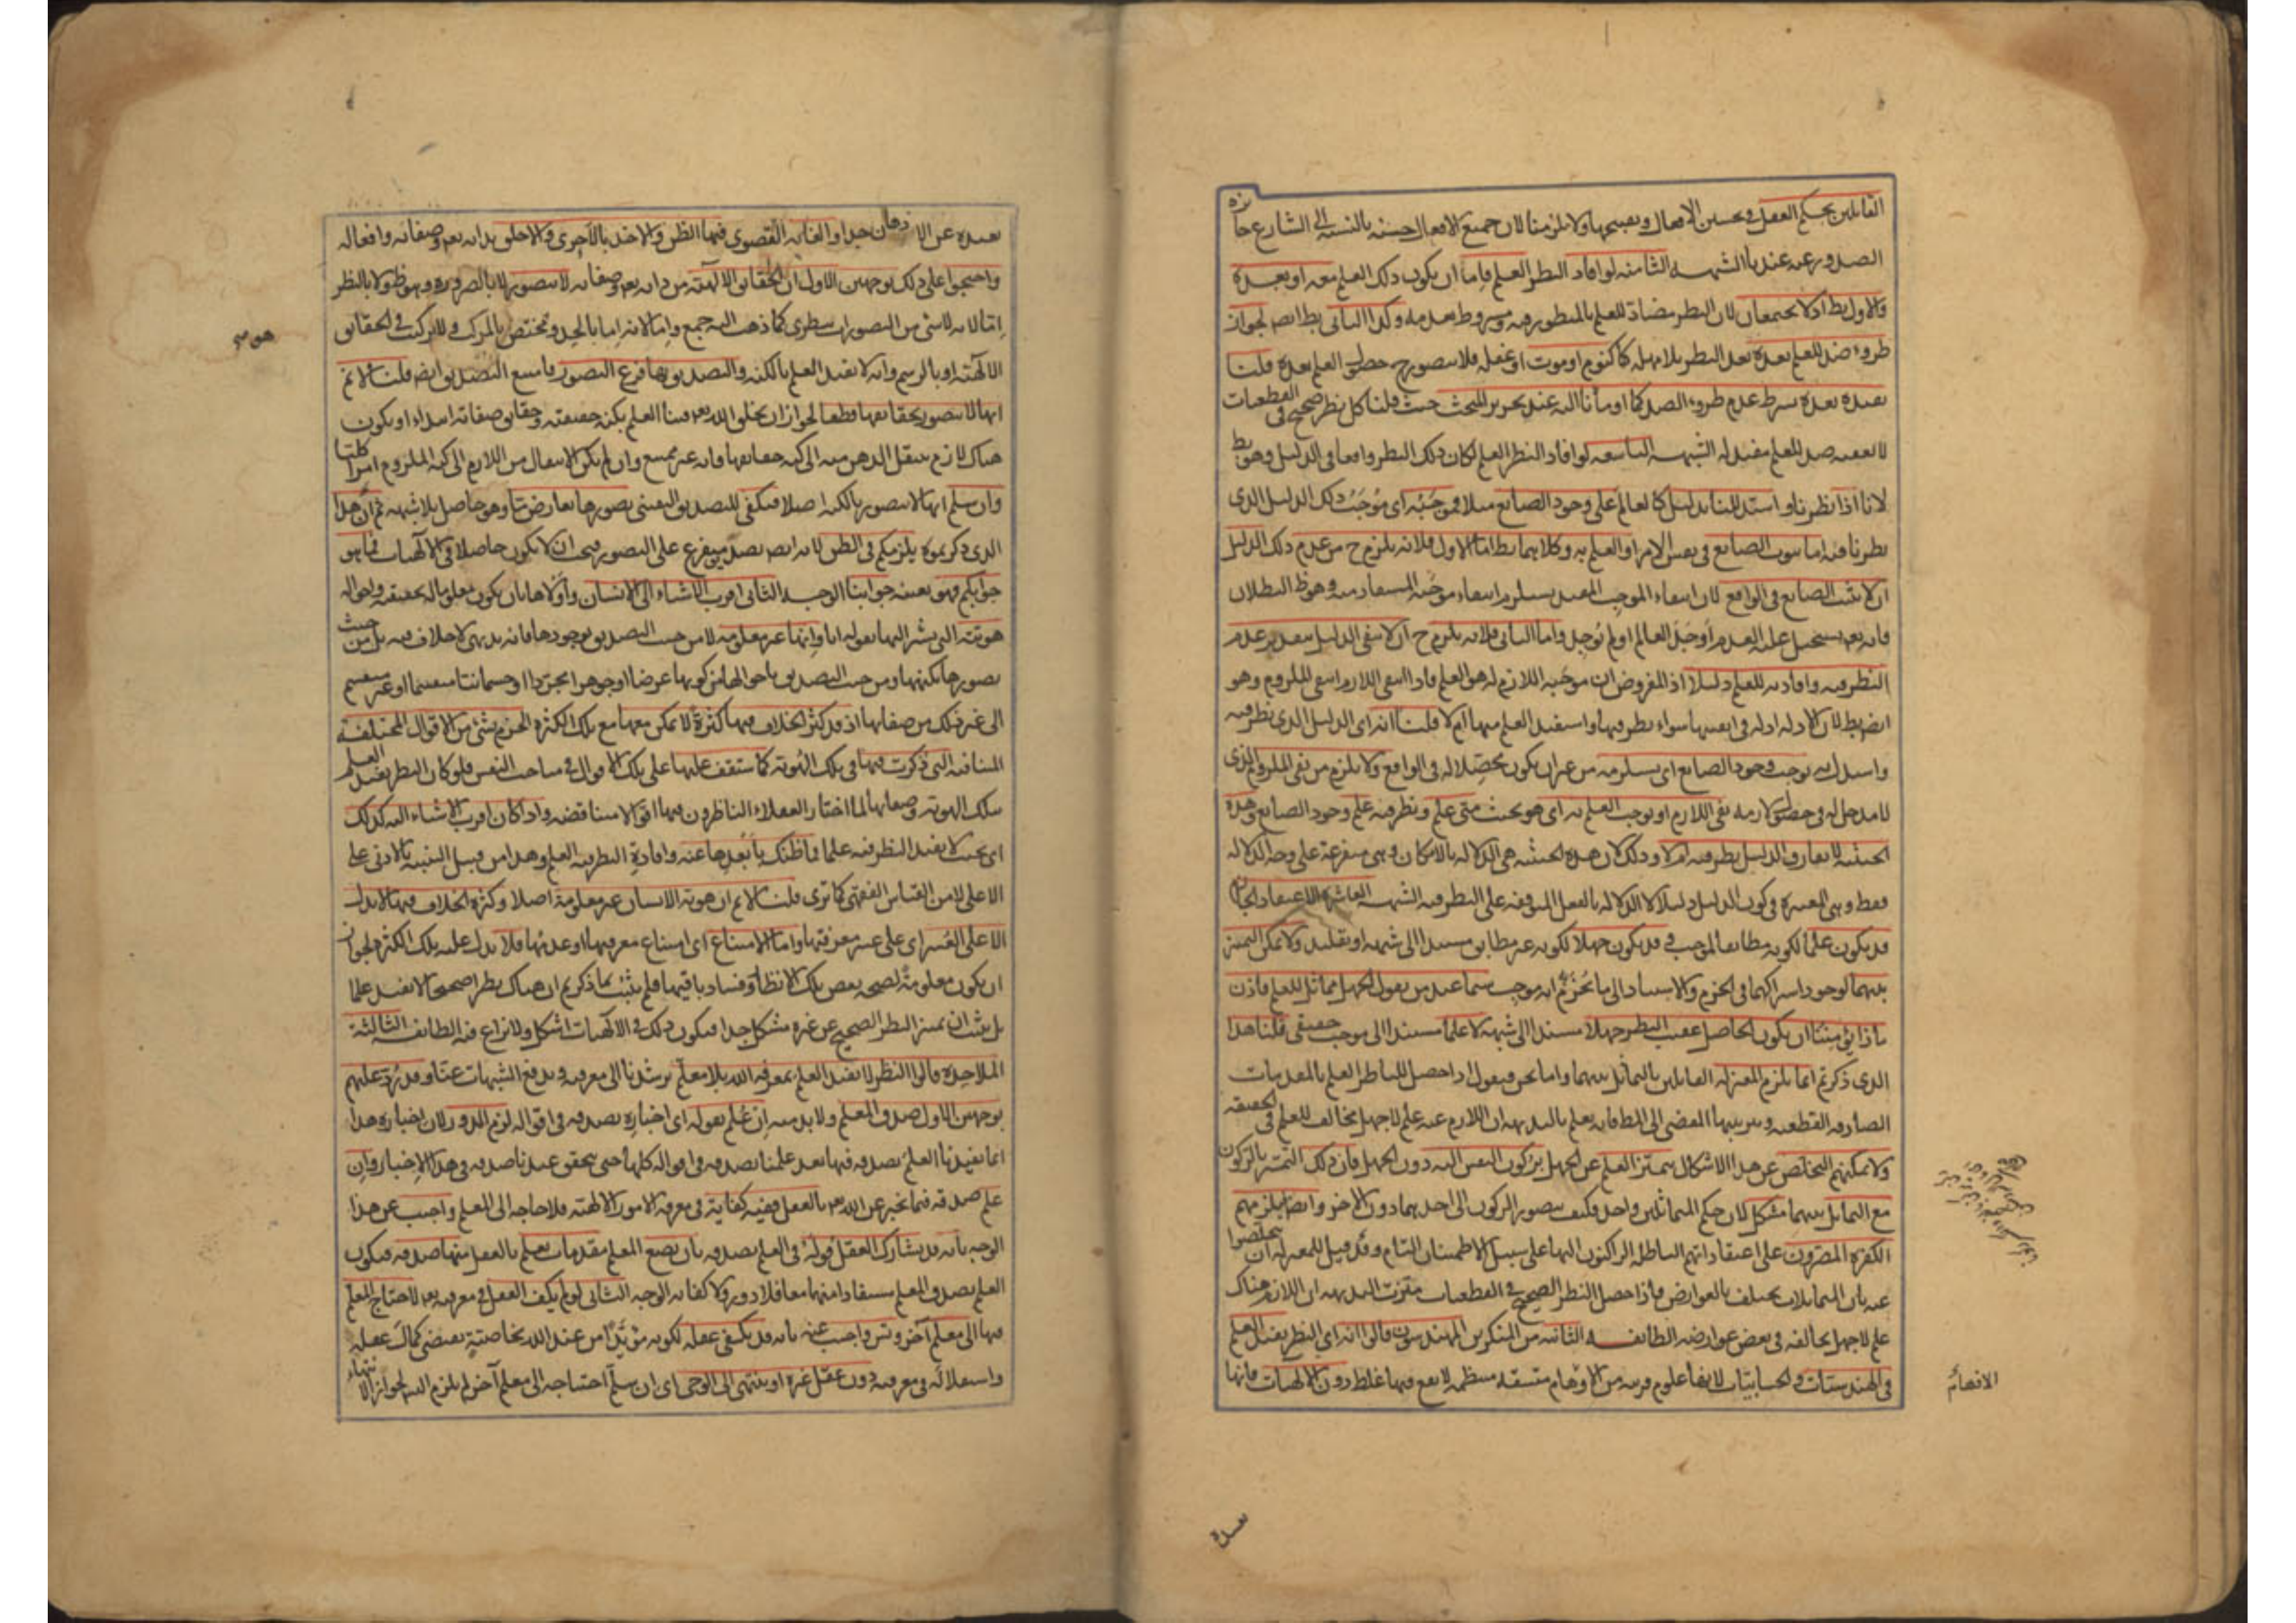 القائلين بحكم العقل في تحسين الأفعال وتقبيحها ولا تلزمنا لان جميع الافعال حسنة بالنسبة الى الشارع جائزة
الصدور عنه عندنا الشبهة الثامنة لو افاد النظر العلم فاما ان يكون ذلك العلم معه او بعده
والاول بط اذ لا يجتمعان لان النظر مضاد للعلم بالمنظور فيه ومشروط بعدمه وكذا الثاني بط ايضا لجواز
طروء ضد للعلم بعده بعد النظر بلا مهلة كنوم او موت او غفلة فلا يتصور ح حصول العلم بعده قلنا
يفيده بعده بشرط عدم طروء الضد كما اومأنا اليه عند تحرير المبحث حيث قلنا كل نظر صحيح في القطعيات
لا يعقبه ضد للعلم مفيد له الشبهة التاسعة لو افاد النظر العلم لكان ذلك النظر واقعا في الدليل وهو بط
لانا اذا نظرنا واستدللنا بدليل كالعالم على وجود الصانع مثلا فموجَبُه اى موجَبُ ذلك الدليل الذى
نظرنا فيه اما ثبوت الصانع في نفس الامر او العلم به وكلاهما بط اما الاول فلانه يلزم ح من عدم ذلك الدليل
ان لا يثبت الصانع في الواقع لان انتفاء الموجب المفيد يستلزم انتفاء موجبه المستفاد منه وهو ظ البطلان
فانه تعم يستحيل عليه العدم اوجد العالم او لم يوجد واما الثاني فلانه يلزم ح ان لا يبقى الدليل بتقدير عدم
النظر فيه وافادته للعلم دليلا اذ المفروض ان موجبه اللازم له هو العلم فاذا انتفى اللازم انتفى الملزوم وهو
ايضا بط لان الادلة ادلة في انفسها سواء نظر فيها واستفيد العلم منها ام لا قلنا انه اى الدليل الذى نظر فيه
واستدل به يوجب وجود الصانع اى يستلزمه من غير ان يكون محصلا له في الواقع ولا يلزم من نفى الملزوم الذى
لا مدخل له في حصول لازمه نفى اللازم او يوجب العلم به اى هو بحيث متى علم ونظر فيه علم وجود الصانع وهذه
الحيثية لا تفارق الدليل نظر فيه ام لا وذلك لان هذه الحيثية هي الدلالة بالامكان وهي متفرعة على وجه الدلالة
فقط وهي المعتبرة في كون الدليل دليلا لا الدلالة بالفعل المتوقفة على النظر فيه الشبهة العاشرة الاعتقاد الجازم
قد يكون علما لكونه مطابقا لموجب وقد يكون جهلا لكونه غير مطابق مستندا الى شبهة او تقليد ولا يمكن التميز
بينهما لوجود اشتراكهما في الجزم والاستناد الى ما يجزم انه موجب سيما عند من يقول الجهل مماثل للعلم فاذن
ماذا يؤمننا ان يكون الحاصل عقيب النظر جهلا مستندا الى شبهة لا علما مستندا الى موجب حقيقى قلنا هذا
الذى ذكرتم انما يلزم المعتزلة القائلين بالتماثل بينهما واما نحن فنقول اذا حصل للناظر العلم بالمقدمات
الصادقة القطعية وبترتيبها المفضى الى المط فانه يعلم بالبديهة ان اللازم عنه علم لا جهل مخالف للعلم في الحقيقة
ولا يمكنهم التخلص عن هذا الاشكال بتميز العلم عن الجهل بركون النفس اليه دون الجهل فان ذلك التميز بالركون
مع التماثل بينهما مشكل لان حكم المتماثلين واحد فكيف يتصور الركون الى احدهما دون الاخر وايضا يلزمهم
الكفرة المصرون على اعتقاداتهم الباطلة الراكنون اليها على سبيل الاطمئنان التام وقد قيل للمعتزلة ان يتخلصوا
عنه بان المتماثلات تختلف بالعوارض فاذا حصل النظر الصحيح في القطعيات ميزت البديهة ان اللازم هناك
علم لا جهل يخالفه في بعض عوارضه الطائفة الثانية من المنكرين المهندسون قالوا انه اى النظر يفيد العلم
في الهندسيات والحسابيات لانها علوم قريبة من الاوهام متسقة منتظمة لا يقع فيها غلط دون الالهيات فانها
الافهام
بعيدة
بعيدة عن الاذهان جدا والغاية القصوى فيها الظن والاخذ بالاحرى والاخلق بذاته تعم وصفاته وافعاله
واحتجوا على ذلك بوجهين الاول ان الحقائق الالهية من ذاته تعم وصفاته لا تتصور لا بالضرورة وهو ظ ولا بالنظر
اما لانه لا شئ من التصورات بنظرى كما ذهب اليه جمع واما لانه اما بالحد ويختص بالمركب ولا تركب في الحقائق
الالهية او بالرسم وانه لا يفيد العلم بالكنه والتصديق بها فرع التصور فامتنع التصديق ايضا قلنا لا نم
انها لا تتصور بحقائقها قطعا لجواز ان يخلق الله تعم فينا العلم بكنه حقيقته وحقائق صفاته ابتداء او يكون
هناك لازم ينتقل الذهن منه الى كنه حقائقها فانه غير ممتنع وان لم يكن الانتقال من اللازم الى كنه الملزوم امرا كليا
وان سلم انها لا تتصور بالكنه اصلا فيكفى للتصديق اليقينى تصورها بعارض ما وهو حاصل بلا شبهة ثم ان هذا
الذى ذكرتموه يلزمكم في الظن لانه ايضا تصديق متفرع على التصور فيجب ان لا يكون حاصلا في الالهيات فما هو
جوابكم فهو بعينه جوابنا الوجه الثانى اقرب الاشياء الى الانسان واولاها بان يكون معلوما له بحقيقته واحواله
هويته التى يشير اليها بقوله انا وانها غير معلومة لا من حيث التصديق بوجودها فانه بديهى لا خلاف فيه بل من حيث
تصورها بكنهها ومن حيث التصديق باحوالها من كونها عرضا او جوهرا مجردا او جسمانيا منقسما او غير منقسم
الى غير ذلك من صفاتها اذ قد كثر الخلاف فيها كثرة لا يمكن معها مع تلك الكثرة الجزم بشئ من الاقوال المختلفة
المتنافية التى ذكرت فيها في تلك الهوية كما ستقف عليها على تلك الاقوال في مباحث النفس فلو كان النظر يفيد العلم
بتلك الهوية وصفاتها لما اختار العقلاء الناظرون فيها اقوالا متناقضة واذا كان اقرب الاشياء اليه كذلك
اى بحيث لا يفيد النظر فيه علما فما ظنك بابعدها عنه وافادة النظر فيه العلم وهذا من قبيل التنبيه بالادنى على
الاعلى لا من القياس الفقهى كما ترى قلنا لا نم ان هوية الانسان غير معلومة اصلا وكثرة الخلاف فيها لا يدل
الا على العسر اى على عسر معرفتها واما الامتناع اى امتناع معرفتها او عدمها فلا يدل عليه تلك الكثرة لجواز
ان يكون معلومة لصحة بعض تلك الانظار وفساد باقيها فلم يثبت بما ذكرتم ان هناك نظرا صحيحا لا يفيد علما
بل يثبت ان تميز النظر الصحيح عن غيره مشكل جدا فيكون ذلك في الالهيات اشكل ولا نزاع فيه الطائفة الثالثة
الملاحدة قالوا النظر لا يفيد العلم بمعرفة الله بلا معلم يرشدنا الى معرفته ويدفع الشبهات عنا وقد رد عليهم
بوجهين الاول صدق المعلم ولا بد منه ان علم بقوله اى اخباره بصدقه في اقواله لزم الدور لان اخباره هذا
انما يفيدنا العلم بصدقه فيها بعد علمنا بصدقه في اقواله كلها حتى يتحقق عندنا صدقه في هذا الاخبار وان
علم صدقه فيما يخبر عن الله تعم بالعقل ففيه كفاية في معرفة الامور الالهية فلا حاجة الى المعلم واجيب عن هذا
الوجه بانه قد يشارك العقل قوله في العلم بصدقه بان يضع المعلم مقدمات يعلم بالعقل منها صدقه فيكون
العلم بصدق المعلم مستفادا منهما معا فلا دور ولا كفاية الوجه الثانى لو لم يكف العقل في معرفته تعم لاحتاج المعلم
فيها الى معلم آخر وتس واجيب عنه بانه قد يكفى عقله لكونه مؤيدا من عند الله بخاصية تقتضى كمال عقله
واستقلاله في معرفته دون عقل غيره او ينتهى الى الوحى اى ان سلم احتياجه الى معلم آخر لم يلزم التس لجواز الانتهاء